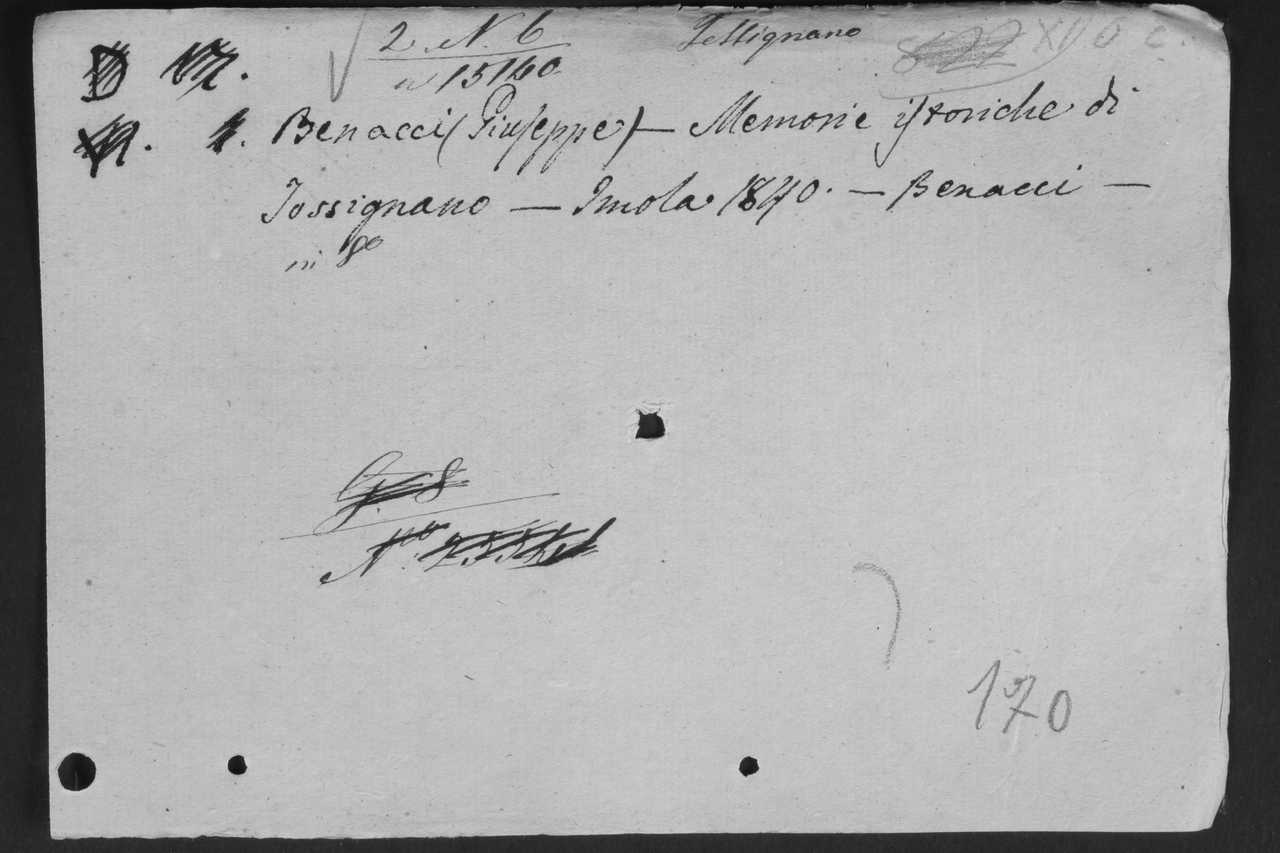 2 N. 6
n 15160
Tossignano
XII 6 c.
Benacci (Giuseppe) — Memorie istoriche di
Tossignano — Imola 1840. — Benacci —
in 8o
G. 8
No.
170